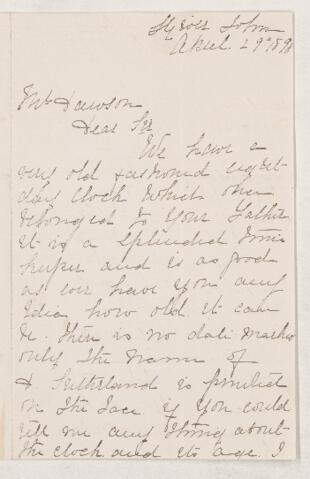 River John
April 29th 189
Mr Dawson
Dear Sir
We have a
very old fashiond eight
day clock which once
belonged to your Father
it is a splendid time
keeper and is as good
as ever have you any
Idea how old it can
be. Ther is no date marked
only the name of
Sutherland is printed
on the face if you could
tell me any thing about
the clock and its age. I